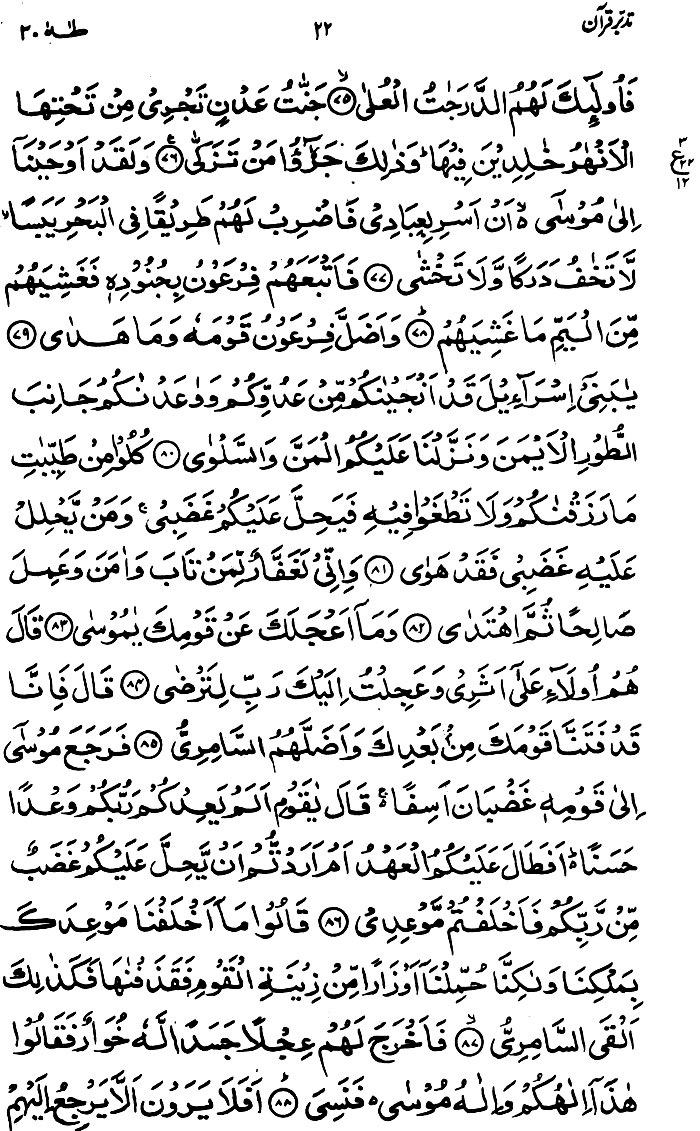 تدبر قرآن ۲۲ طٰهٰ ۲۰
فَاُولٰٓئِكَ لَهُمُ الدَّرَجٰتُ الْعُلٰى ﴿۷۵﴾ جَنّٰتُ عَدْنٍ تَجْرِيْ مِنْ تَحْتِهَا
الْاَنْهٰرُ خٰلِدِيْنَ فِيْهَا ؕ وَذٰلِكَ جَزٰٓؤُا مَنْ تَزَكّٰى ﴿۷۶﴾ وَلَقَدْ اَوْحَيْنَآ
۳ ع ۲۲ ۱۲
اِلٰى مُوْسٰٓى ۙ۬ اَنْ اَسْرِ بِعِبَادِيْ فَاضْرِبْ لَهُمْ طَرِيْقًا فِي الْبَحْرِ يَبَسًا ۙ
لَّا تَخٰفُ دَرَكًا وَّلَا تَخْشٰى ﴿۷۷﴾ فَاَتْبَعَهُمْ فِرْعَوْنُ بِجُنُوْدِهٖ فَغَشِيَهُمْ
مِّنَ الْيَمِّ مَا غَشِيَهُمْ ؕ ﴿۷۸﴾ وَاَضَلَّ فِرْعَوْنُ قَوْمَهٗ وَمَا هَدٰى ﴿۷۹﴾
يٰبَنِيْٓ اِسْرَآءِيْلَ قَدْ اَنْجَيْنٰكُمْ مِّنْ عَدُوِّكُمْ وَوٰعَدْنٰكُمْ جَانِبَ
الطُّوْرِ الْاَيْمَنَ وَنَزَّلْنَا عَلَيْكُمُ الْمَنَّ وَالسَّلْوٰى ﴿۸۰﴾ كُلُوْا مِنْ طَيِّبٰتِ
مَا رَزَقْنٰكُمْ وَلَا تَطْغَوْا فِيْهِ فَيَحِلَّ عَلَيْكُمْ غَضَبِيْ ۚ وَمَنْ يَّحْلِلْ
عَلَيْهِ غَضَبِيْ فَقَدْ هَوٰى ﴿۸۱﴾ وَاِنِّيْ لَغَفَّارٌ لِّمَنْ تَابَ وَاٰمَنَ وَعَمِلَ
صَالِحًا ثُمَّ اهْتَدٰى ﴿۸۲﴾ وَمَآ اَعْجَلَكَ عَنْ قَوْمِكَ يٰمُوْسٰى ﴿۸۳﴾ قَالَ
هُمْ اُولَآءِ عَلٰٓى اَثَرِيْ وَعَجِلْتُ اِلَيْكَ رَبِّ لِتَرْضٰى ﴿۸۴﴾ قَالَ فَاِنَّا
قَدْ فَتَنَّا قَوْمَكَ مِنْۢ بَعْدِكَ وَاَضَلَّهُمُ السَّامِرِيُّ ﴿۸۵﴾ فَرَجَعَ مُوْسٰٓى
اِلٰى قَوْمِهٖ غَضْبَانَ اَسِفًا ۚ قَالَ يٰقَوْمِ اَلَمْ يَعِدْكُمْ رَبُّكُمْ وَعْدًا
حَسَنًا ؕ اَفَطَالَ عَلَيْكُمُ الْعَهْدُ اَمْ اَرَدْتُّمْ اَنْ يَّحِلَّ عَلَيْكُمْ غَضَبٌ
مِّنْ رَّبِّكُمْ فَاَخْلَفْتُمْ مَّوْعِدِيْ ﴿۸۶﴾ قَالُوْا مَآ اَخْلَفْنَا مَوْعِدَكَ
بِمَلْكِنَا وَلٰكِنَّا حُمِّلْنَآ اَوْزَارًا مِّنْ زِيْنَةِ الْقَوْمِ فَقَذَفْنٰهَا فَكَذٰلِكَ
اَلْقَى السَّامِرِيُّ ۙ ﴿۸۷﴾ فَاَخْرَجَ لَهُمْ عِجْلًا جَسَدًا لَّهٗ خُوَارٌ فَقَالُوْا
هٰذَآ اِلٰهُكُمْ وَاِلٰهُ مُوْسٰى ۬ فَنَسِيَ ؕ ﴿۸۸﴾ اَفَلَا يَرَوْنَ اَلَّا يَرْجِعُ اِلَيْهِمْ